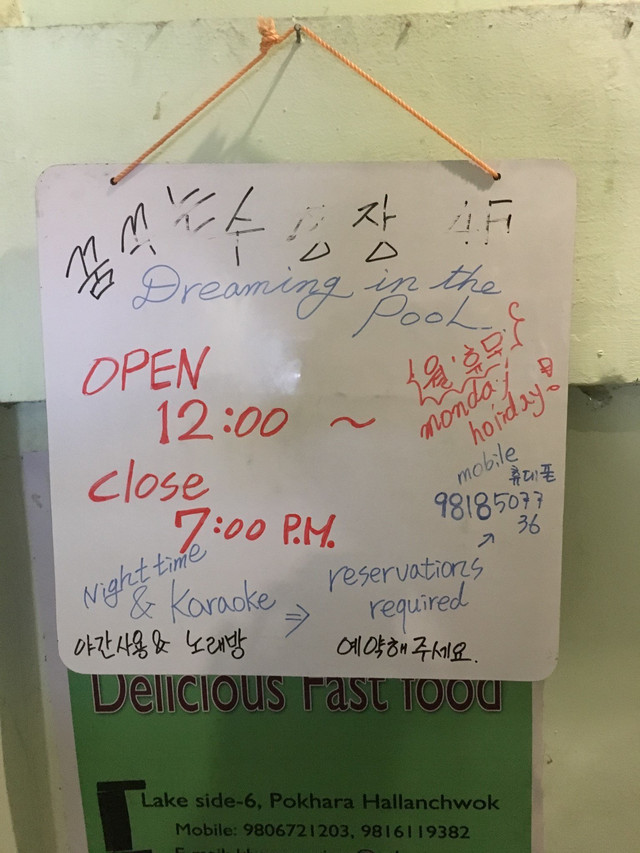 꿈꾸는 수영장 4F
Dreaming in the
Pool.
OPEN
12:00 ~
월·휴무
monday
holiday!
close
7:00 P.M.
mobile
휴대폰
98185077
36
Night time
& Karaoke ⇒
reservations
required
야간사용 & 노래방
예약해주세요.
Delicious Fast food
Lake side-6, Pokhara Hallanchwok
Mobile: 9806721203, 9816119382